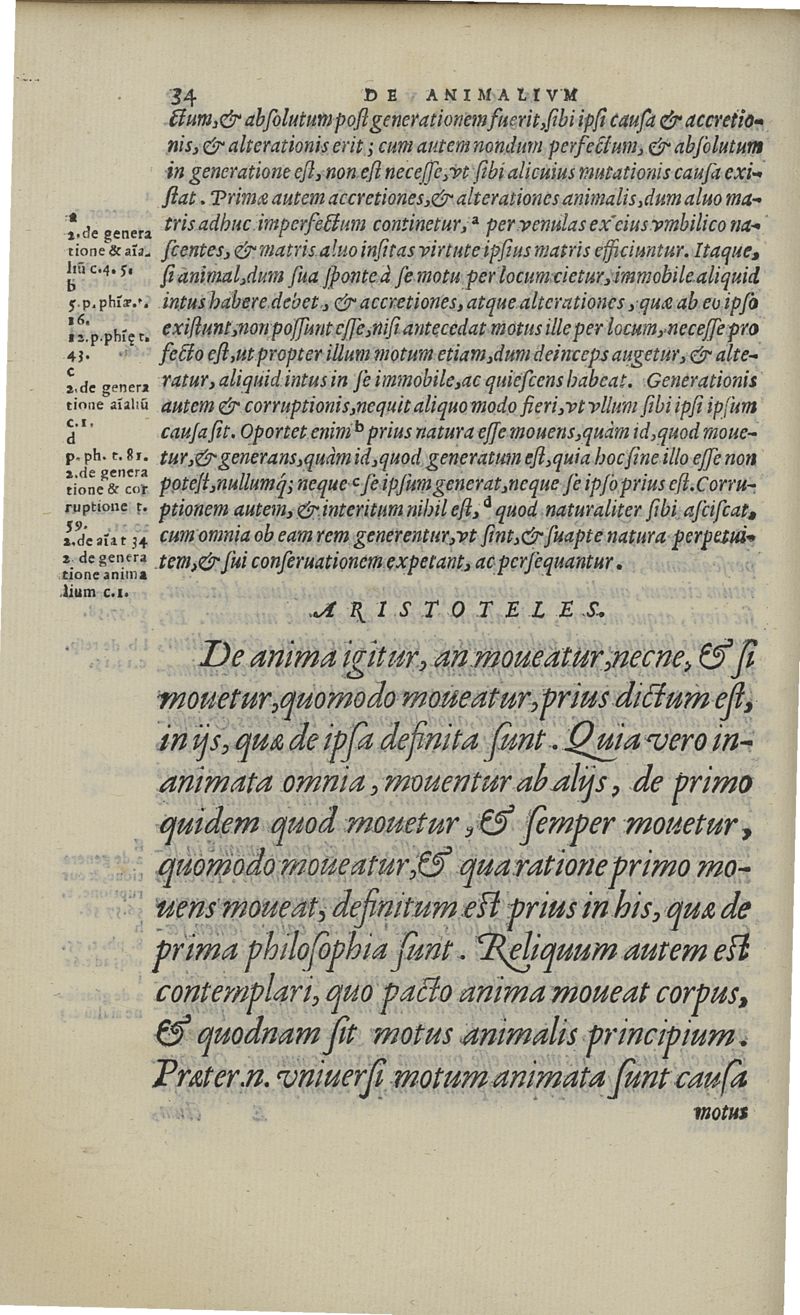 34 DE ANIMALIVM
ctum, & absolutum post generationem fuerit, sibi ipsi causa & accretio-
nis, & alterationis erit; cum autem nondum perfectum, & absolutum
in generatione est, non est necesse, vt sibi alicuius mutationis causa exi-
stat. Primæ autem accretiones, & alterationes animalis, dum aluo ma-
tris adhuc imperfectum continetur, a per venulas ex eius vmbilico na-
scentes, & matris aluo insitas virtute ipsius matris efficiuntur. Itaque,
si animal, dum sua sponte à se motu per locum cietur, immobile aliquid
intus habere debet, & accretiones, atque alterationes, quæ ab eo ipso
existunt, non possunt esse, nisi antecedat motus ille per locum, necesse pro
fecto est, ut propter illum motum etiam, dum deinceps augetur, & alte-
ratur, aliquid intus in se immobile, ac quiescens habeat. Generationis
autem & corruptionis, nequit aliquo modo fieri, vt vllum sibi ipsi ipsum
causa sit. Oportet enim b prius natura esse mouens, quàm id, quod moue-
tur, & generans, quàm id, quod generatum est, quia hoc sine illo esse non
potest, nullumq́; neque c se ipsum generat, neque se ipso prius est. Corru-
ptionem autem, & interitum nihil est, d quod naturaliter sibi asciscat,
cum omnia ob eam rem generentur, vt sint, & suapte natura perpetui-
tem, & sui conseruationem expetant, ac persequantur.
a
2. de genera
tione & aīa-
liū c. 4. 5.
b
5. p. phīæ. t.
16.
12. p. phīę t.
43.
c
2. de genera
tione aīaliū
c. 1.
d
p. ph. t. 81.
2. de genera
tione & cor
ruptione t.
59.
2. de aīa t 34
2 de genera
tione anima
lium c. 1.
ARISTOTELES.
De anima igitur, an moueatur, necne, & si
mouetur, quomodo moueatur, prius dictum est,
in ijs, quæ de ipsa definita sunt. Quia vero in-
animata omnia, mouentur ab alijs, de primo
quidem quod mouetur, & semper mouetur,
quomodo moueatur, & qua ratione primo mo-
uens moueat, definitum est prius in his, quæ de
prima philosophia sunt. Reliquum autem est
contemplari, quo pacto anima moueat corpus,
& quodnam sit motus animalis principium.
Præter.n. vniuersi motum animata sunt causa
motus